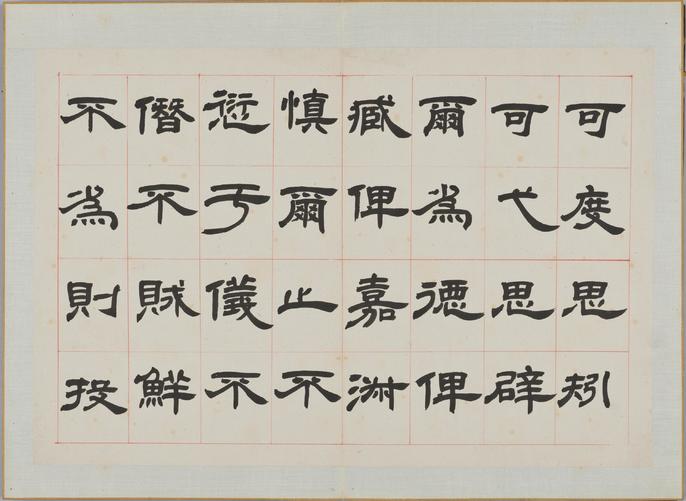 可度思矧
可弋思辟
爾為德俾
臧俾嘉淑
慎爾止不
愆于儀不
僭不賊鮮
不為則投